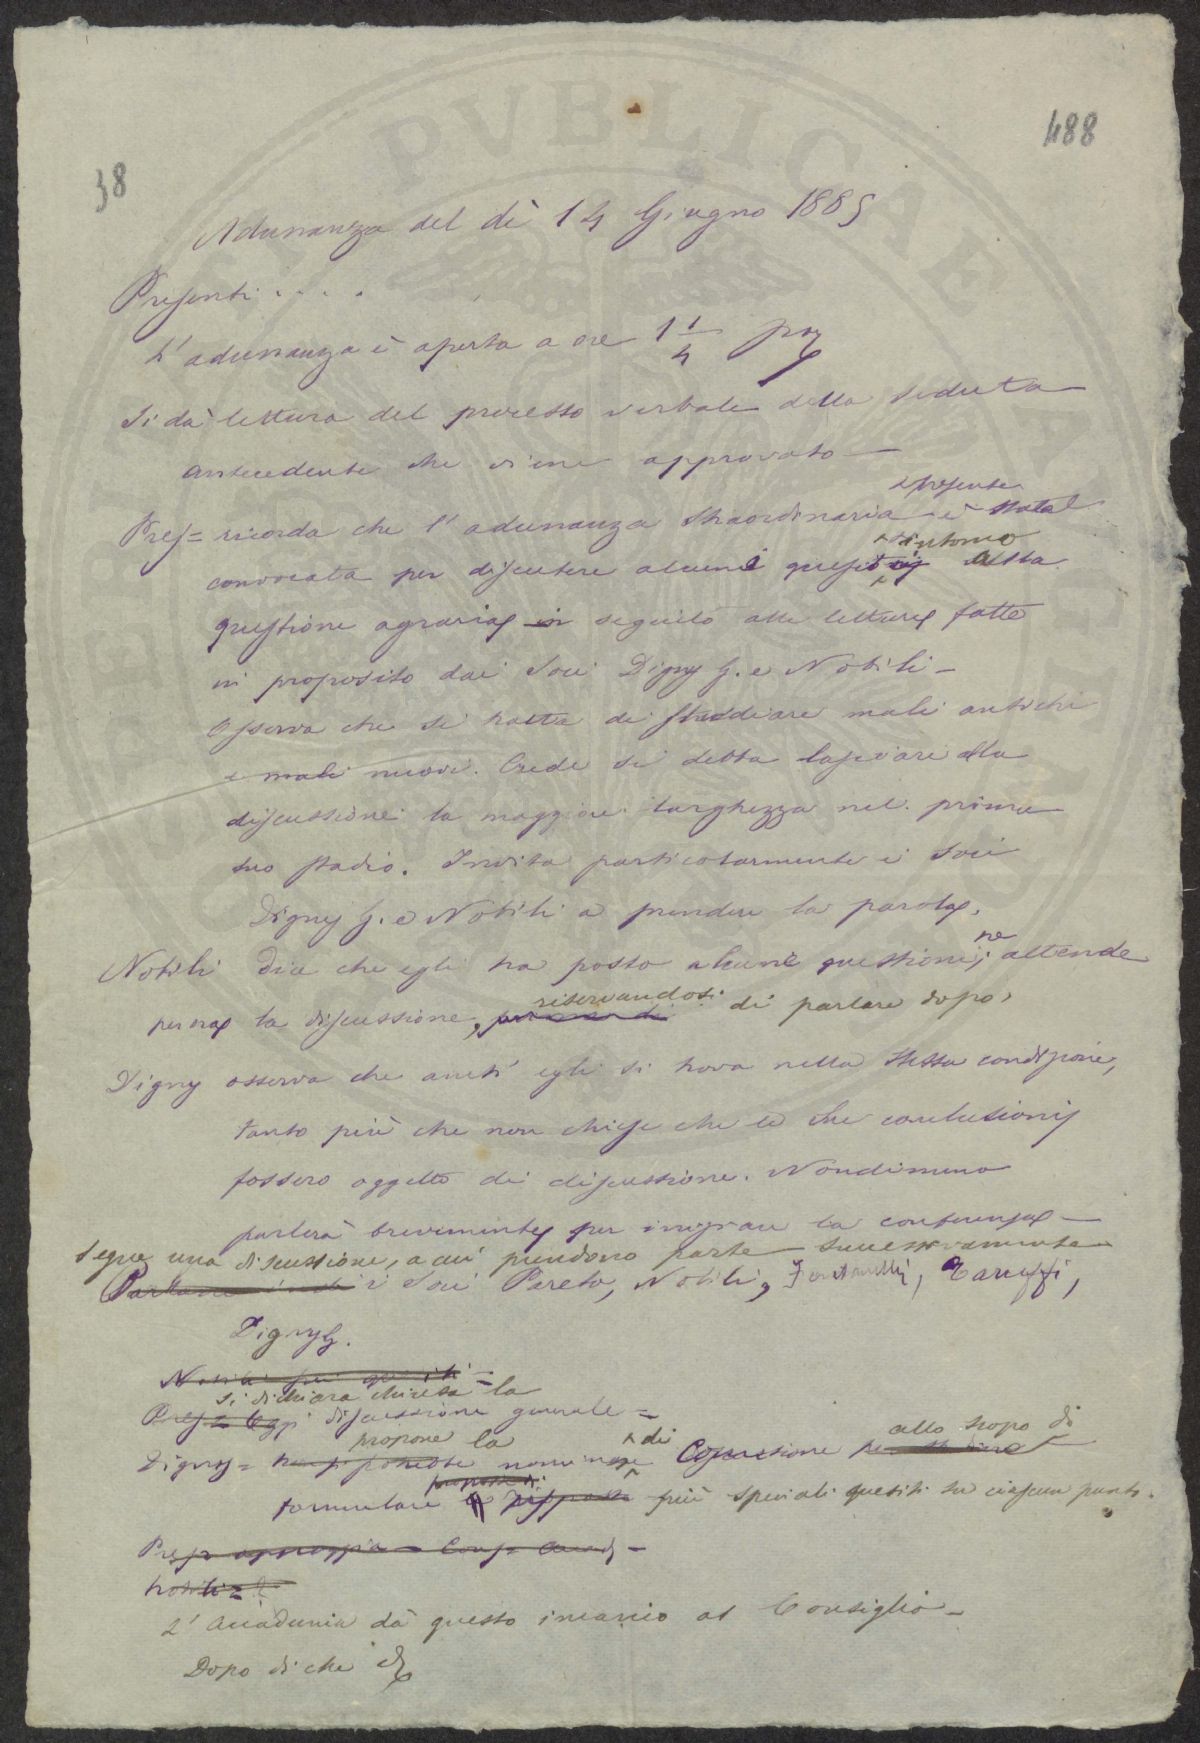 488
38
Adunanza del dì 14 Giugno 1885
Presenti . . . .
L'adunanza è aperta a ore 1 1/4 pom
Si dà lettura del processo verbale della seduta
antecedente che viene approvato —
Pres = ricorda che l'adunanza straordinaria presente è stata
convocata per discutere alcuni quesiti intorno alla
questione agraria in seguito alle letture fatte
in proposito dai Soci Digny G. e Nobili —
Osserva che si tratta di studiare mali antichi
e mali nuovi. Crede si debba lasciare alla
discussione la maggiore larghezza nel primo
suo stadio. Invita particolarmente i Soci
Digny G. e Nobili a prendere la parola.
Nobili dice che egli ha posto alcune questioni; ne attende
per ora la discussione, riservandosi di parlare dopo.
Digny osserva che anch'egli si trova nella stessa condizione,
tanto più che non chiese che le sue conclusioni
fossero oggetto di discussione. Nondimeno
parlerà brevemente per iniziare la conferenza —
Segue una discussione, a cui prendono parte successivamente
Parlano indi i Soci Pareto, Nobili, Fontanelli, Taruffi,
Digny G.
si dichiara chiusa la
Pres = discussione generale =
Digny = propone la nomina di Commissione allo scopo di
formulare più speciali quesiti su ciascun punto.
Pres appoggia =
Nobili =
L'Accademia dà questo incarico al Consiglio —
Dopo di che
PVBLICAE